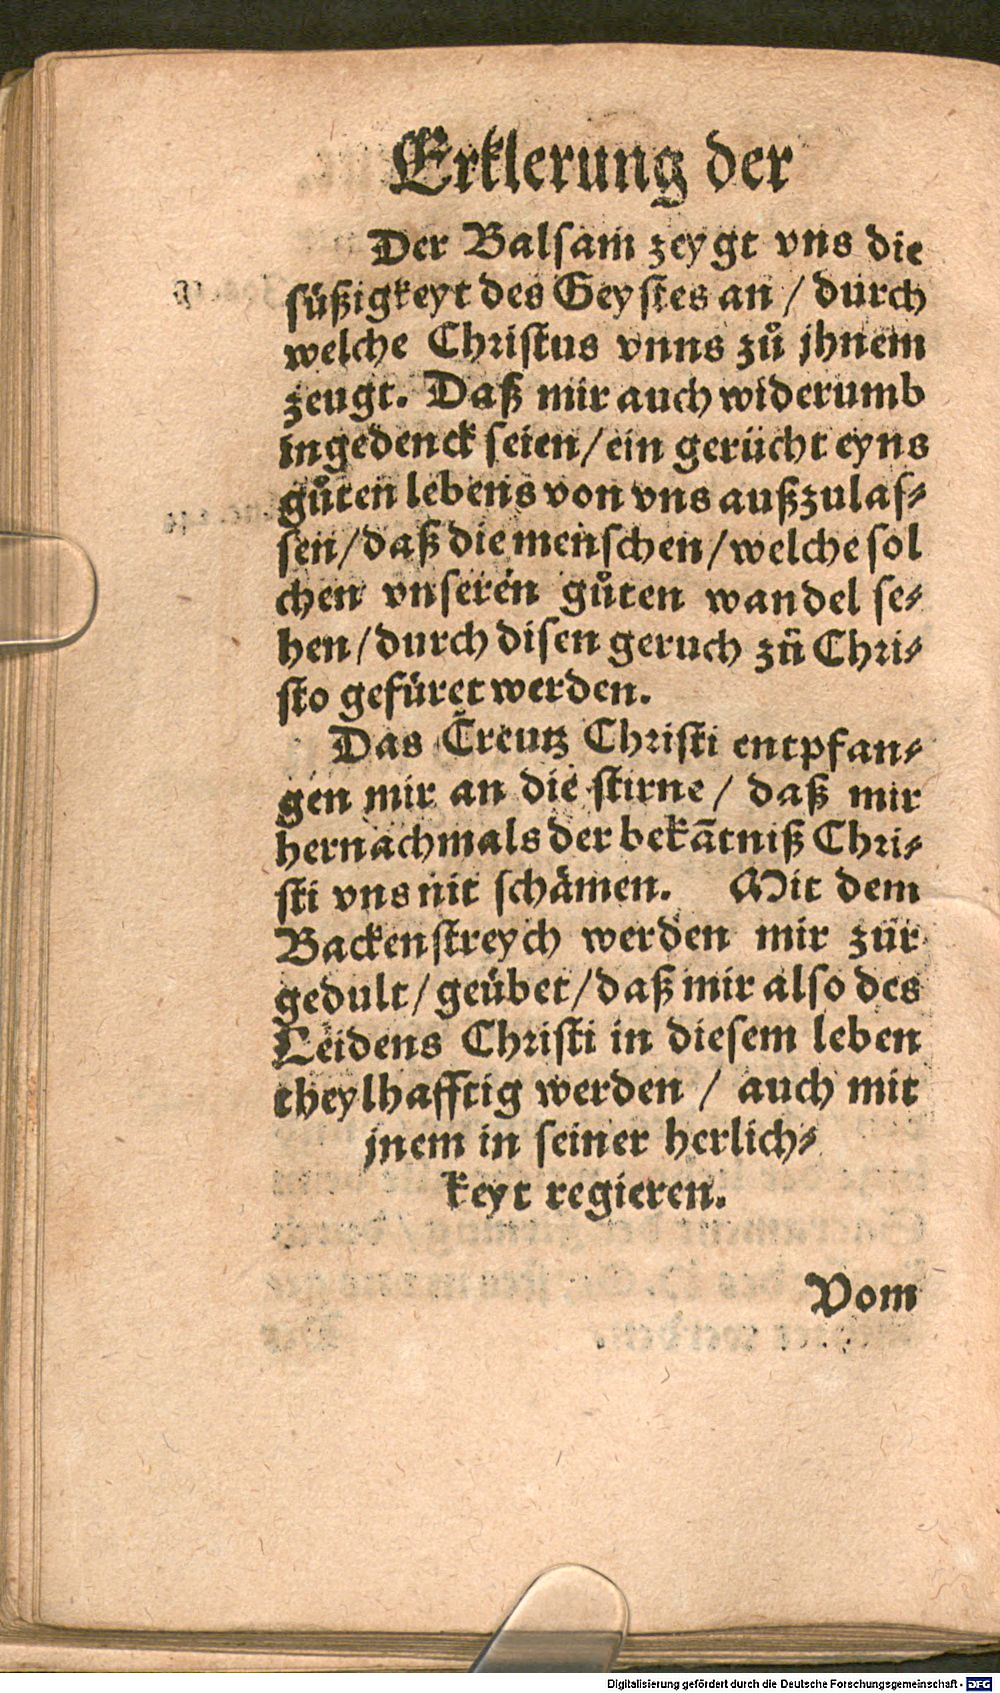 Erklerung der
Der Balsam zeygt vns die
süßigkeyt des Geystes an / durch
welche Christus vnns zů jhnem
zeugt. Daß mir auch widerumb
ingedenck seien / ein gerücht eyns
gůten lebens von vns außzulas⸗
sen / daß die menschen / welche sol
chen vnseren gůten wandel se⸗
hen / durch disen geruch zů Chri⸗
sto gefüret werden.
Das Creutz Christi entpfan⸗
gen mir an die stirne / daß mir
hernachmals der bekãtniß Chri⸗
sti vns nit schämen. Mit dem
Backenstreych werden mir zur
gedult / geübet / daß mir also des
Leidens Christi in diesem leben
theylhafftig werden / auch mit
jnem in seiner herlich⸗
keyt regieren.
Vom
Digitalisierung gefördert durch die Deutsche Forschungsgemeinschaft - DFG